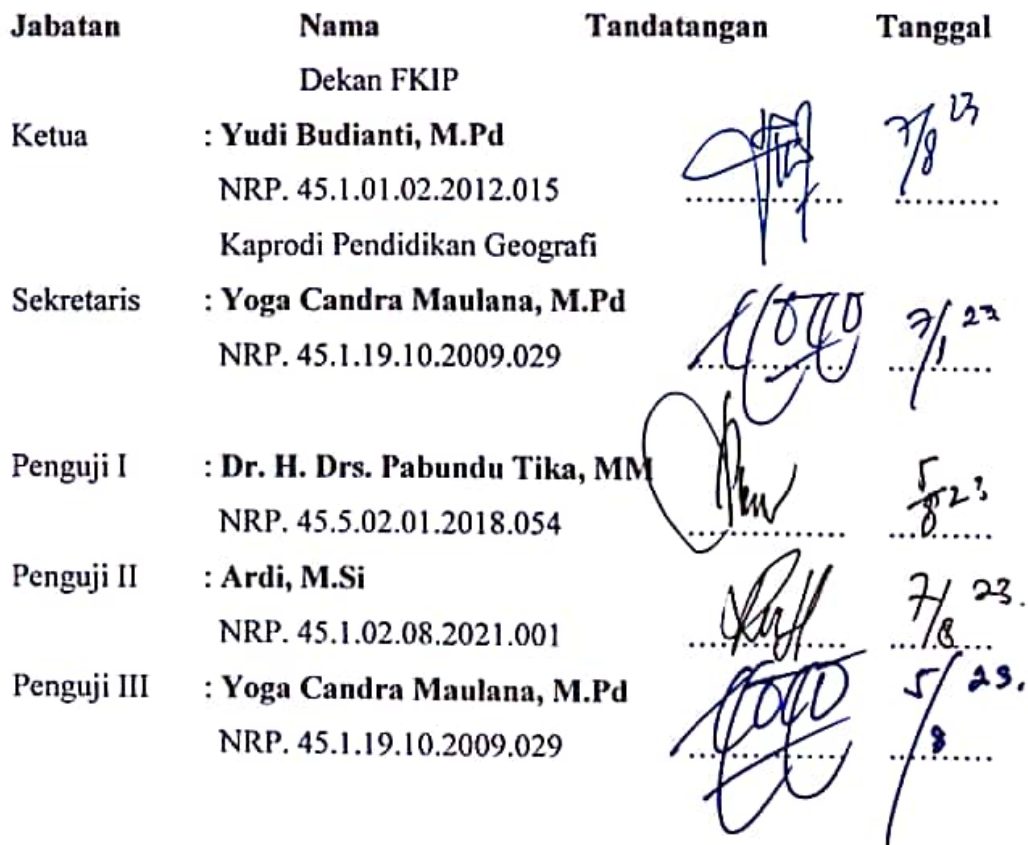 Jabatan Nama Tandatangan Tanggal
Dekan FKIP
Ketua : Yudi Budianti, M.Pd 7/8 23
NRP. 45.1.01.02.2012.015 .................. ............
Kaprodi Pendidikan Geografi
Sekretaris : Yoga Candra Maulana, M.Pd 7/1 23
NRP. 45.1.19.10.2009.029 .................. ............
Penguji I : Dr. H. Drs. Pabundu Tika, MM 5/8 23
NRP. 45.5.02.01.2018.054 .................. ............
Penguji II : Ardi, M.Si 7/8 23.
NRP. 45.1.02.08.2021.001 .................. ............
Penguji III : Yoga Candra Maulana, M.Pd 5/8 23.
NRP. 45.1.19.10.2009.029 .................. ............